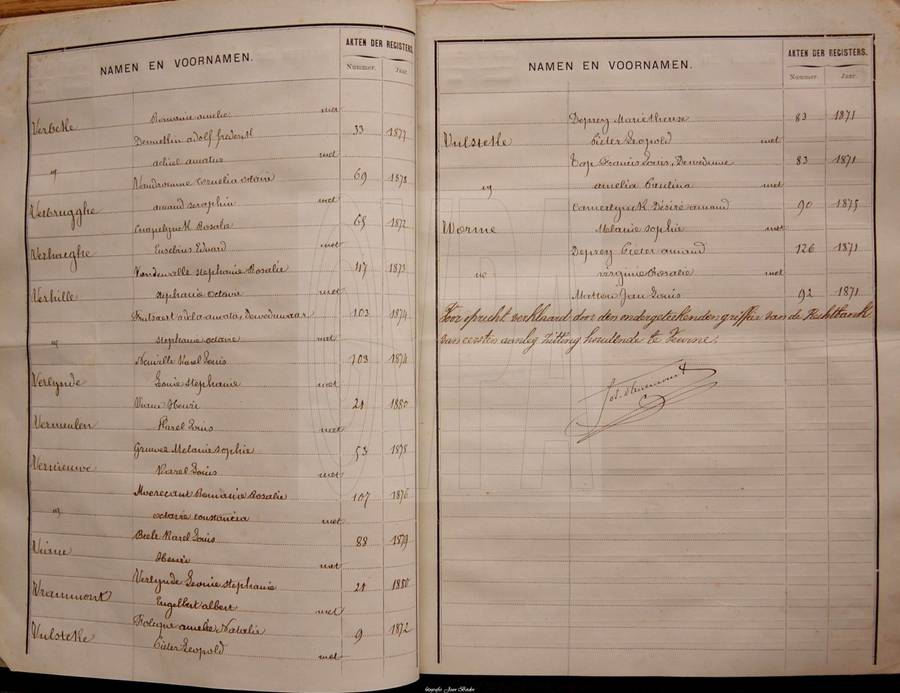 NAMEN EN VOORNAMEN.
AKTEN DER REGISTERS.
Nummer. Jaar.
Verbeke Romanie Amelie met
Demuthin adolf frederik 33 1877
" achiel amatus met
Vandromme Cornelia octavie 69 1878
Verbrugghe amand seraphin met
Cuypelynck Rosalie 65 1872
Verhaeghe Eusebius Eduard met
Vandenwalle Stephanie Rosalie 47 1873
Verhille stephanie octavie met
amatus, Deweduwaar 103 1874
" stephanie octavie met
Neuville Karel Louis 103 1874
Verlynde Leonie Stephanie met
Henri 21 1880
Vermeulen Karel Louis met
Melanie sophie 53 1878
Vernieuwe Karel Louis met
Rosalie 107 1876
" octavie constancia met
Beele Karel Louis 88 1879
Veirne Henri met
Verlynde Leonie Stephanie 21 1880
Vrammont Engelbert albert met
amelie Natalie 9 1872
Vulsteke Pieter Leopold met
NAMEN EN VOORNAMEN.
AKTEN DER REGISTERS.
Nummer. Jaar.
Deprey Marie therese 83 1871
Vulsteke Pieter Leopold met
Top Francis Louis, Deweduwe 83 1871
" amelia Paulina met
Camerlynck Désiré amand 90 1875
Worme Melanie sophie met
Deprey Pieter amand 126 1871
virginie Rosalie met
Matton Jean Louis 92 1871
Voor oprecht verklaard door den ondergeteekenden griffier van de Rechtbank
van eersten aanleg zitting houdende te Veurne.